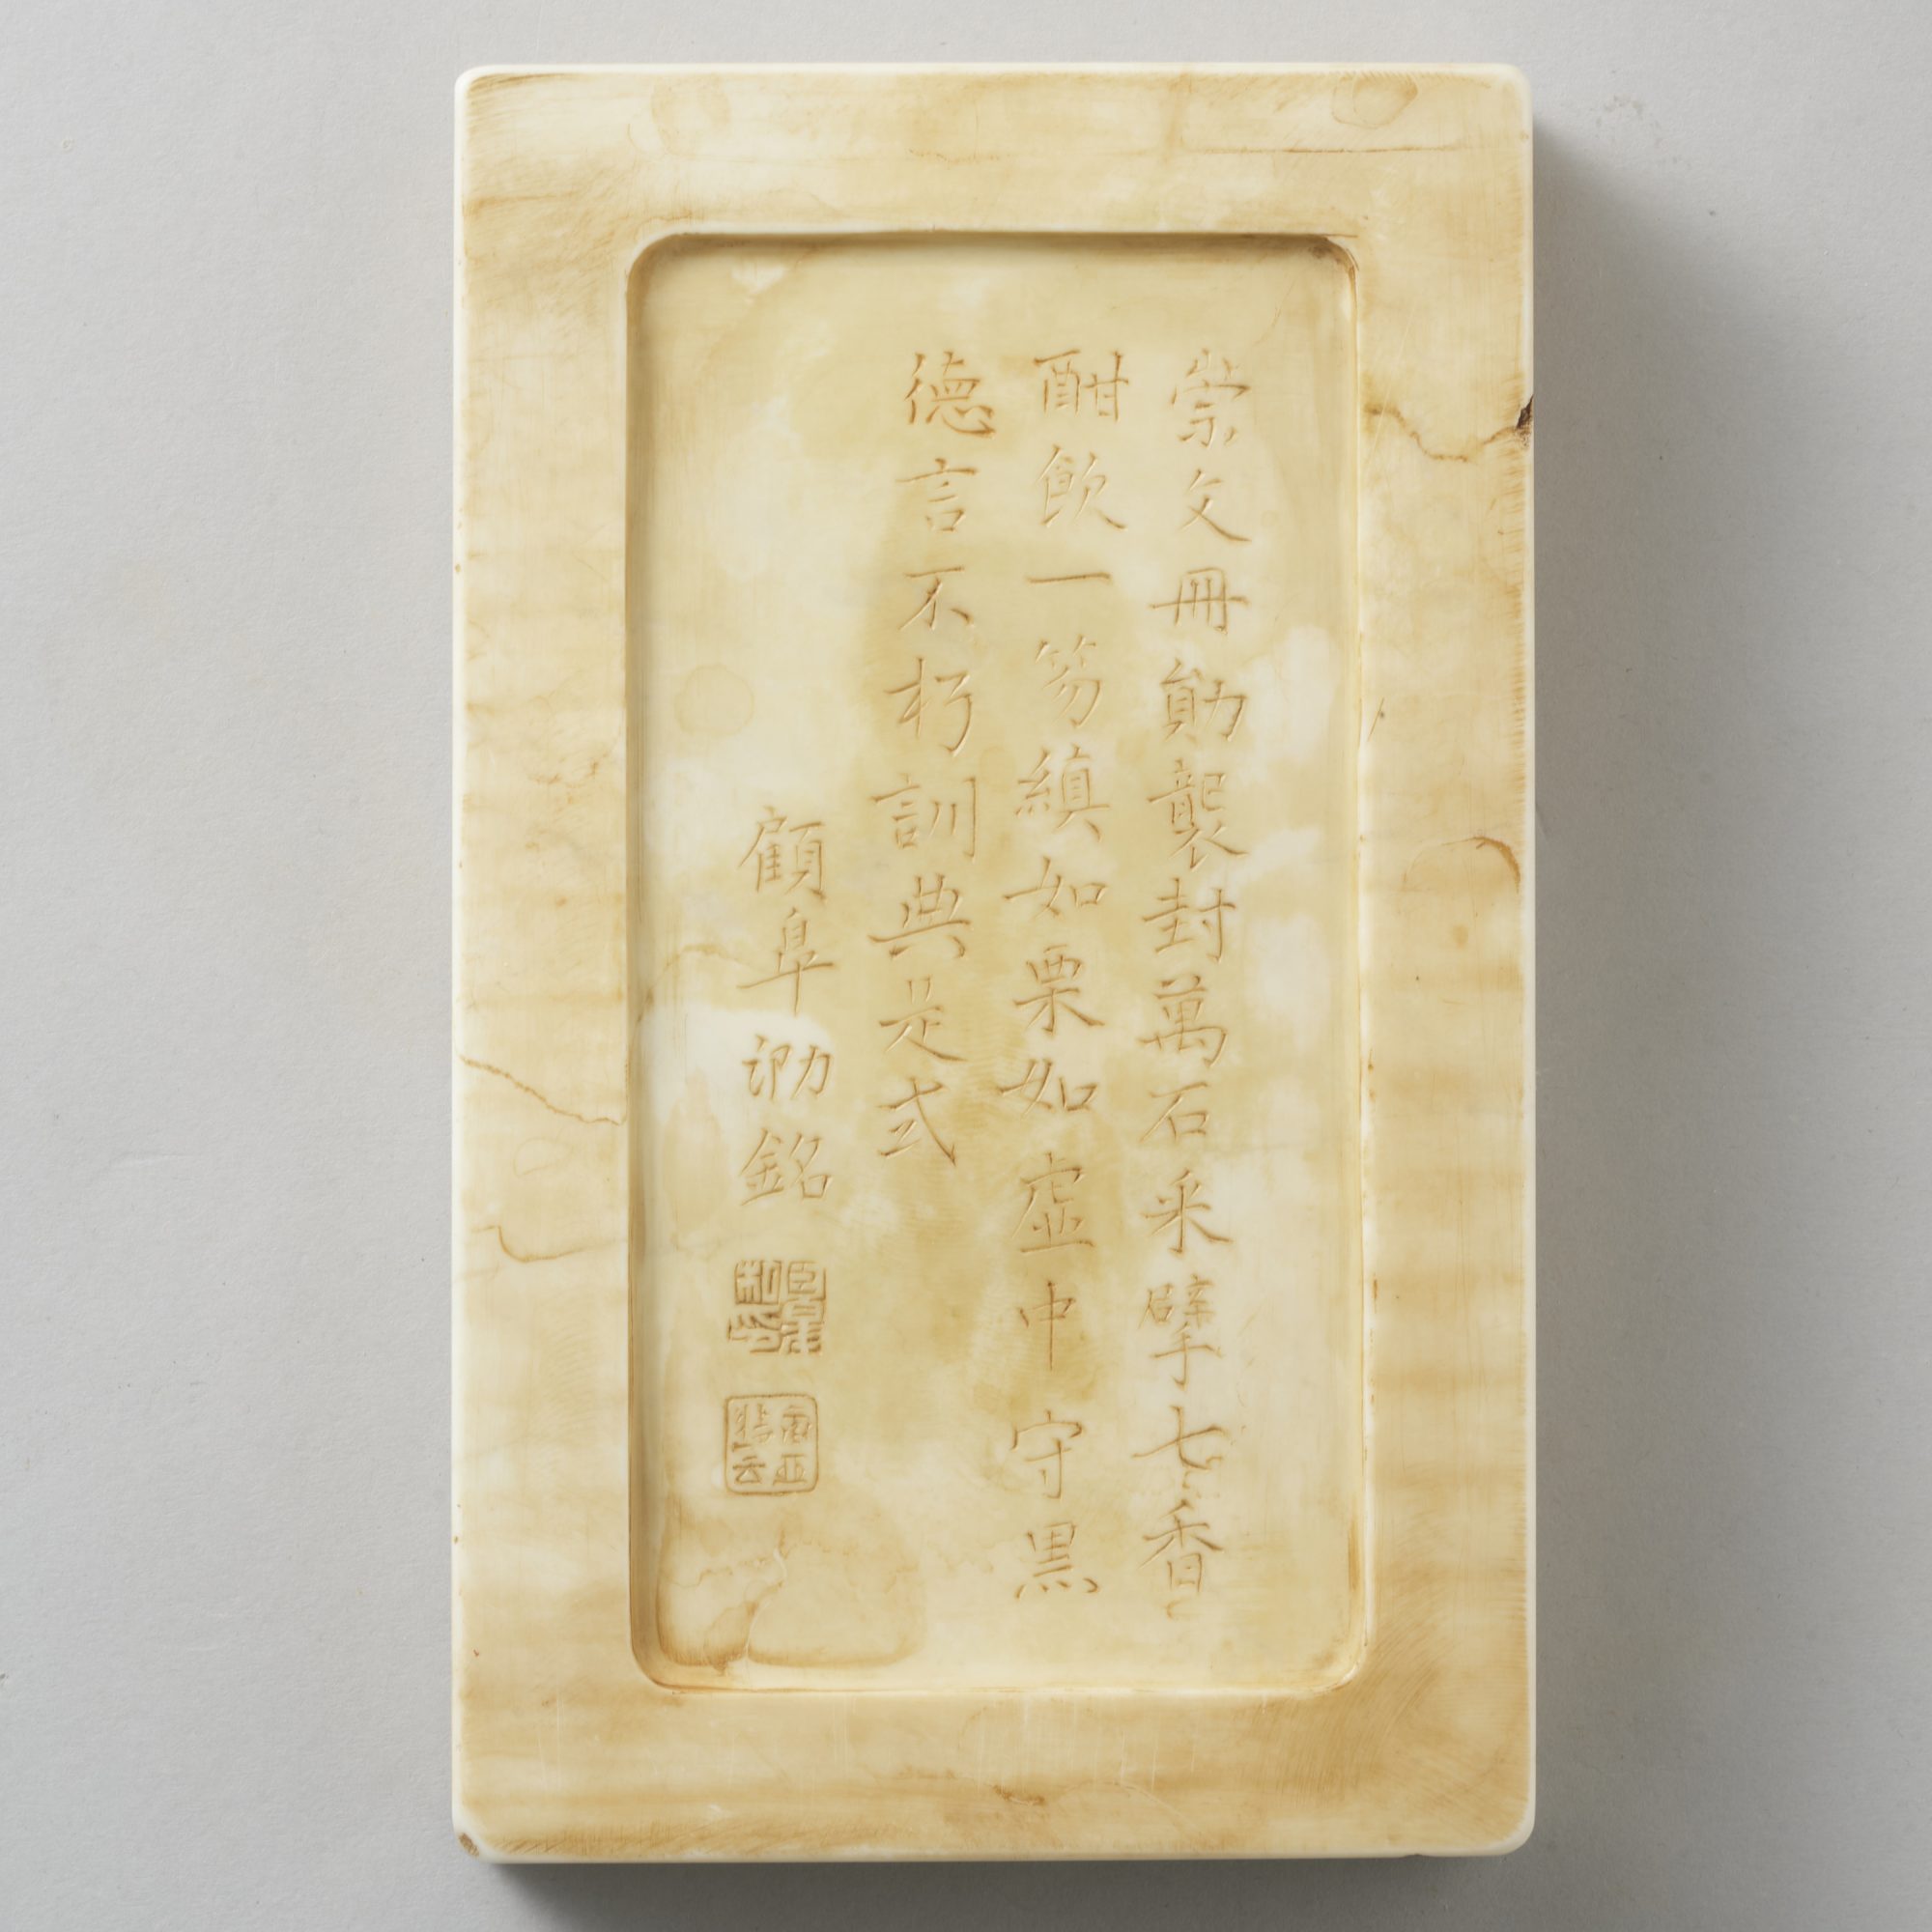 崇文冊勛襲封萬石采擘七香
酣飲一笏縝如栗如虛中守黑
德言不朽訓典是式
顧皋泐銘